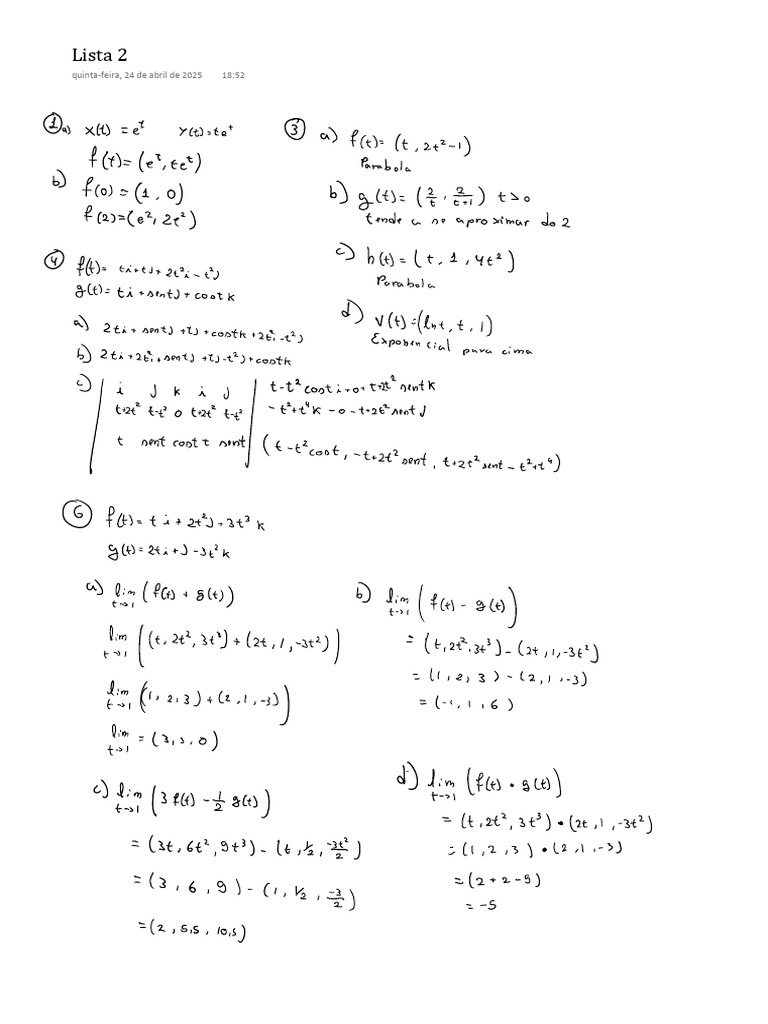 Lista 2
quinta-feira, 24 de abril de 2025 18:52
① a) x(t) = e^t y(t) = te^t
f(t) = (e^t, te^t)
b) f(0) = (1, 0)
f(2) = (e², 2e²)
③ a) f(t) = (t, 2t²-1)
Parabola
b) g(t) = (2/t, 2/(t+1)) t>0
tende a se aproximar do 2
c) h(t) = (t, 1, 4t²)
Parabola
d) v(t) = (ln t, t, 1)
Exponencial para cima
④ f(t) = ti + tj + 2t²i - t²j
g(t) = ti + sentj + costk
a) 2ti + sentj + tj + costk + 2t²i - t²j
b) 2ti + 2t²i + sentj + tj - t²j + costk
c) | i j k i j | t-t² cost i + 0 + t+2t² sent k
t+2t² t-t² 0 t+2t² t-t² | - t²+t⁴ k - 0 - t+2t² sent j
t sent cost t sent | (t-t² cost, -t+2t² sent, t+2t² sent - t²+t⁴)
⑥ f(t) = ti + 2t²j + 3t³k
g(t) = 2ti + j - 3t²k
a) lim t→1 (f(t) + g(t))
lim t→1 ((t, 2t², 3t³) + (2t, 1, -3t²))
lim t→1 (1, 2, 3) + (2, 1, -3))
lim t→1 = (3, 3, 0)
b) lim t→1 (f(t) - g(t))
= (t, 2t², 3t³) - (2t, 1, -3t²)
= (1, 2, 3) - (2, 1, -3)
= (-1, 1, 6)
c) lim t→1 (3f(t) - 1/2 g(t))
= (3t, 6t², 9t³) - (t, 1/2, -3t²/2)
= (3, 6, 9) - (1, 1/2, -3/2)
= (2, 5,5, 10,5)
d) lim t→1 (f(t) • g(t))
= (t, 2t², 3t³) • (2t, 1, -3t²)
= (1, 2, 3) • (2, 1, -3)
= (2 + 2 - 9)
= -5